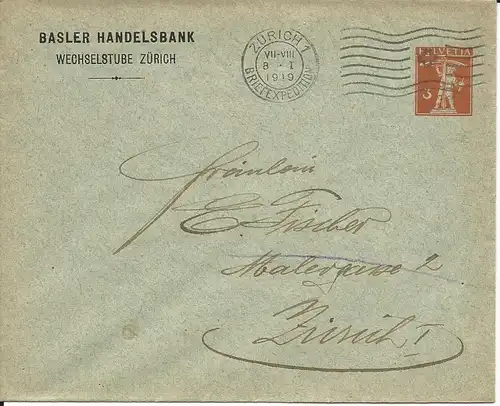 BASLER HANDELSBANK
WECHSELSTUBE ZÜRICH
ZÜRICH 1
VII-VIII
8 - I
1919
BRIEFEXPEDITION
HELVETIA
3
Fräulein
E. Fischer
Malergasse 2
Zürich I